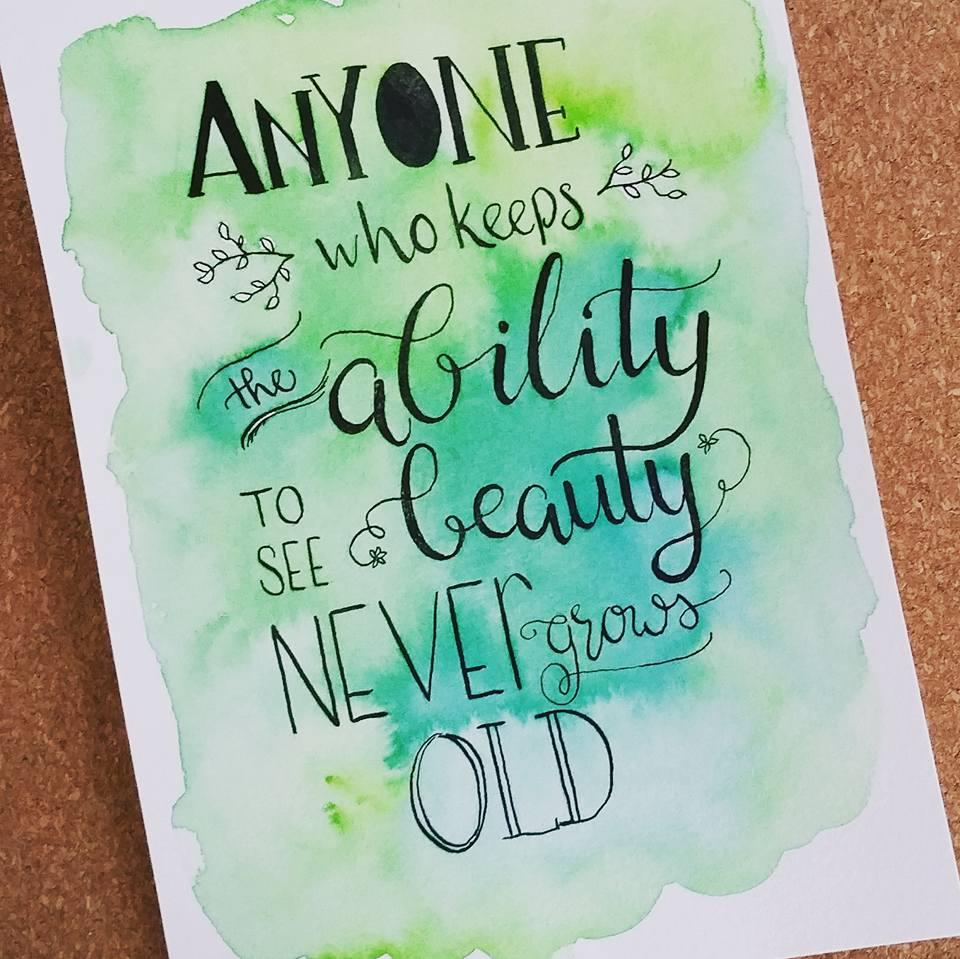 ANYONE
who keeps
the ability
TO SEE beauty
NEVEr grows
OLD